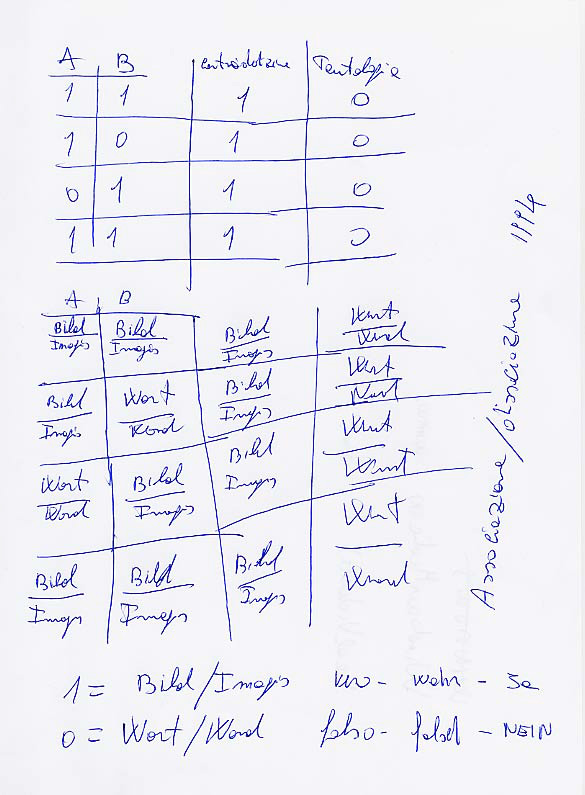 A B Contraddizione Tautologie
1 1 1 0
1 0 1 0
0 1 1 0
1 1 1 0
A B
Bild Bild Bild Wort
Images Images Images Word
Bild Wort Bild Wort
Images Word Images Word
Wort Bild Bild Wort
Word Images Images Word
Bild Bild Bild Wort
Images Images Images Word
1 = Bild/Images vero - wahr - Ja
0 = Wort/Word falso - falsch - NEIN
Associazione/Dissociazione 1994